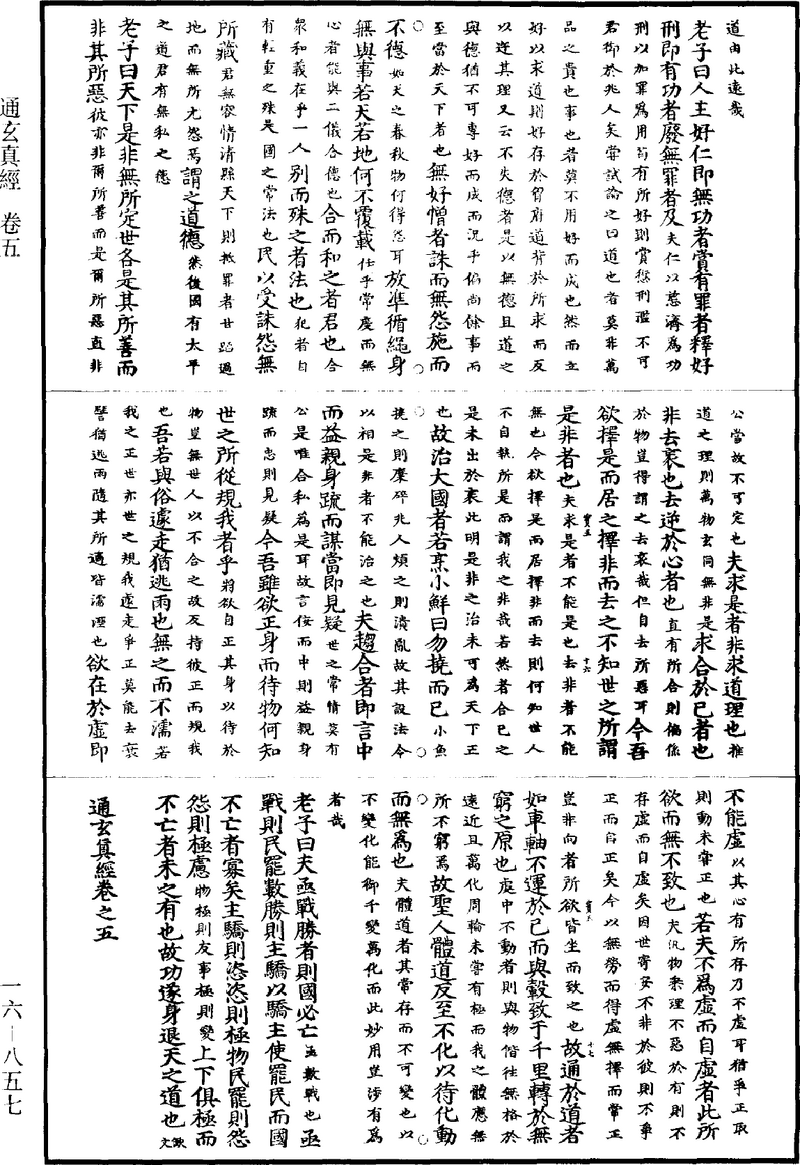 道由此遠哉
老子曰人主好仁即無功者賞有罪者釋好
刑即有功者廢無罪者及夫仁以慈濟為功
刑以加罪為用苟有所好則賞僭刑濫不可
君御於兆人矣嘗試論之曰道也者莫非萬
品之貴也事也者莫不用好而成也然而立
好以求道則好存於智府道背於所求而反
以迕其理又云不失德者是以無德且道之
與德猶不可專好而成而況乎偏尚餘事而
至當於天下者也無好憎者誅而無怨施而
不德如天之春秋物何得怨耳放準循繩身
無與事若天若地何不覆載任乎常度而無
心者能與二儀合德也合而和之者君也合
眾和義在乎一人別而殊之者法也犯者自
有輕重之殊是國之常法也民以受誅怨無
所藏君無容情清縣天下則抵罪者甘蹈過
地而無所尤怨焉謂之道德然後國有太平
之道君有無私之德
老子曰天下是非無所定世各是其所善而
非其所惡彼亦非爾所善而是爾所惡直非
公當故不可定也夫求是者非求道理也推
道之理則萬物玄同無非是求合於己者也
非去衺也去逆於心者也直有所合則偏係
於物豈得謂之去衺哉但自去所惡耳今吾
欲擇是而居之擇非而去之不知世之所謂
是非者也夫求是者不能是也去非者不能
無也今欲擇是而居擇非而去則何知世人
不自執所是而謂我之非哉若然者合己之
是未出於衺此明是非之治未可為天下正
也故治大國者若烹小鮮曰勿撓而已小魚
撓之則糜碎兆人煩之則潰亂故其設法令
以相是非者不能治之也夫趨合者即言中
而益親身疏而謀當即見疑世之常情莫有
公是唯合私為是耳故言佞而中則益親身
疏而忠則見疑今吾雖欲正身而待物何知
世之所從規我者乎將欲自正其身以待於
物豈無世人以不合之故反持彼正而規我
也吾若與俗遽走猶逃雨也無之而不濡若
我之正世亦世之規我遽走乎正莫能去衺
譬猶逃雨隨其所適皆濡溼也欲在於虛即
不能虛以其心有所存乃不虛耳猶乎正取
則動未甞正也若夫不為虛而自虛者此所
欲而無不致也夫汎物乘理不惡於有則不
存虛而自虛矣因世寄安不非於彼則不爭
正而自正矣今以無勞而得虛無擇而常正
豈非向者所欲皆坐而致之也故通於道者
如車軸不運於己而與轂致于千里轉於無
窮之原也處中不動者則與物偕往無格於
遠近且萬化周輪未嘗有極而我之體應無
所不窮焉故聖人體道反至不化以待化動
而無為也夫體道者其常存而不可變也以
不變化能御千變萬化而此妙用豈涉有為
者哉
老子曰夫亟戰勝者則國必亡亟數戰也亟
戰則民罷數勝則主驕以驕主使罷民而國
不亡者寡矣主驕則恣恣則極物民罷則怨
怨則極慮物極則反事極則變上下俱極而
不亡者未之有也故功遂身退天之道也
通玄真經卷之五
通玄真經 卷五
一六—八五七